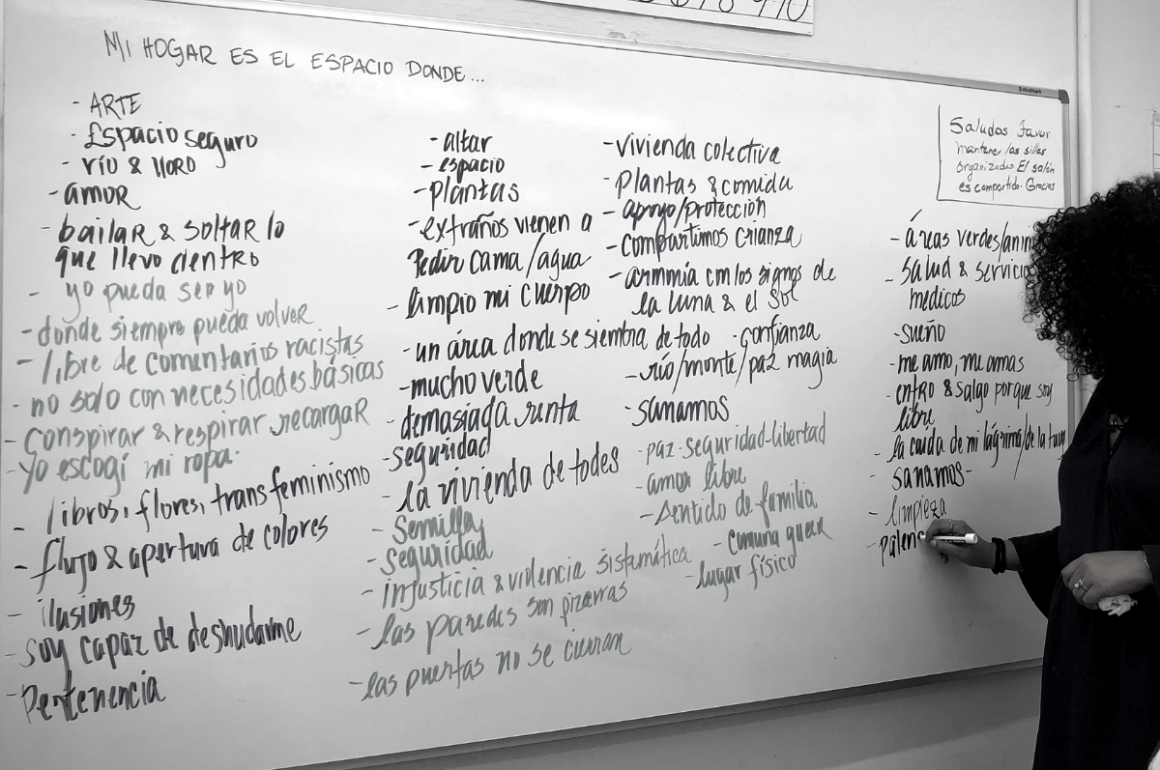 MI HOGAR ES EL ESPACIO DONDE...
- ARTE
- Espacio seguro
- río & lloro
- amor
- bailar & soltar lo
que llevo dentro
- yo pueda ser yo
- donde siempre pueda volver
- libre de comentarios racistas
- no solo con necesidades básicas
- conspirar & respirar, recargar
- Yo escogí mi ropa.
- libros, flores, transfeminismo
- flujo & apertura de colores
- ilusiones
- soy capaz de desnudarme
- Pertenencia
- altar
- espacio
- plantas
- extraños vienen a
Pedir cama/agua
- limpio mi cuerpo
- un área donde se siembra de todo
- mucho verde
- demasiada junta
- seguridad
- la vivienda de todes
- Semilla
- seguridad
- injusticia & violencia sistemática
- las paredes son pizarras
- las puertas no se cierran
- vivienda colectiva
- Plantas & comida
- apoyo/protección
- compartimos crianza
- armonía con los signos de
la luna & el sol
- confianza
- río/monte/paz magia
- sanamos
- paz-seguridad-libertad
- amor libre
- sentido de familia
- comuna queer
- lugar físico
Saludos Favor
mantener las sillas
organizadas El salón
es compartido. Gracias
- áreas verdes/anim
- salud & servicio
medicos
- sueño
- me amo, me amas
- entro & salgo porque soy
libre
- la caída de mi lágrima/de la
- sanamos-
- limpieza
- palenc